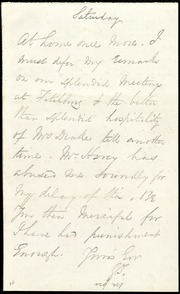 Saturday
At home once more. I
must defer my remarks
on our splendid meeting
at Fitchburg & the better
than splendid hospitality
of Mrs Drake till another
time. Mr. Haven has
abused me soundly for
my delay of this, Be
you then merciful for
I have had punishment
Enough. Yours Ever